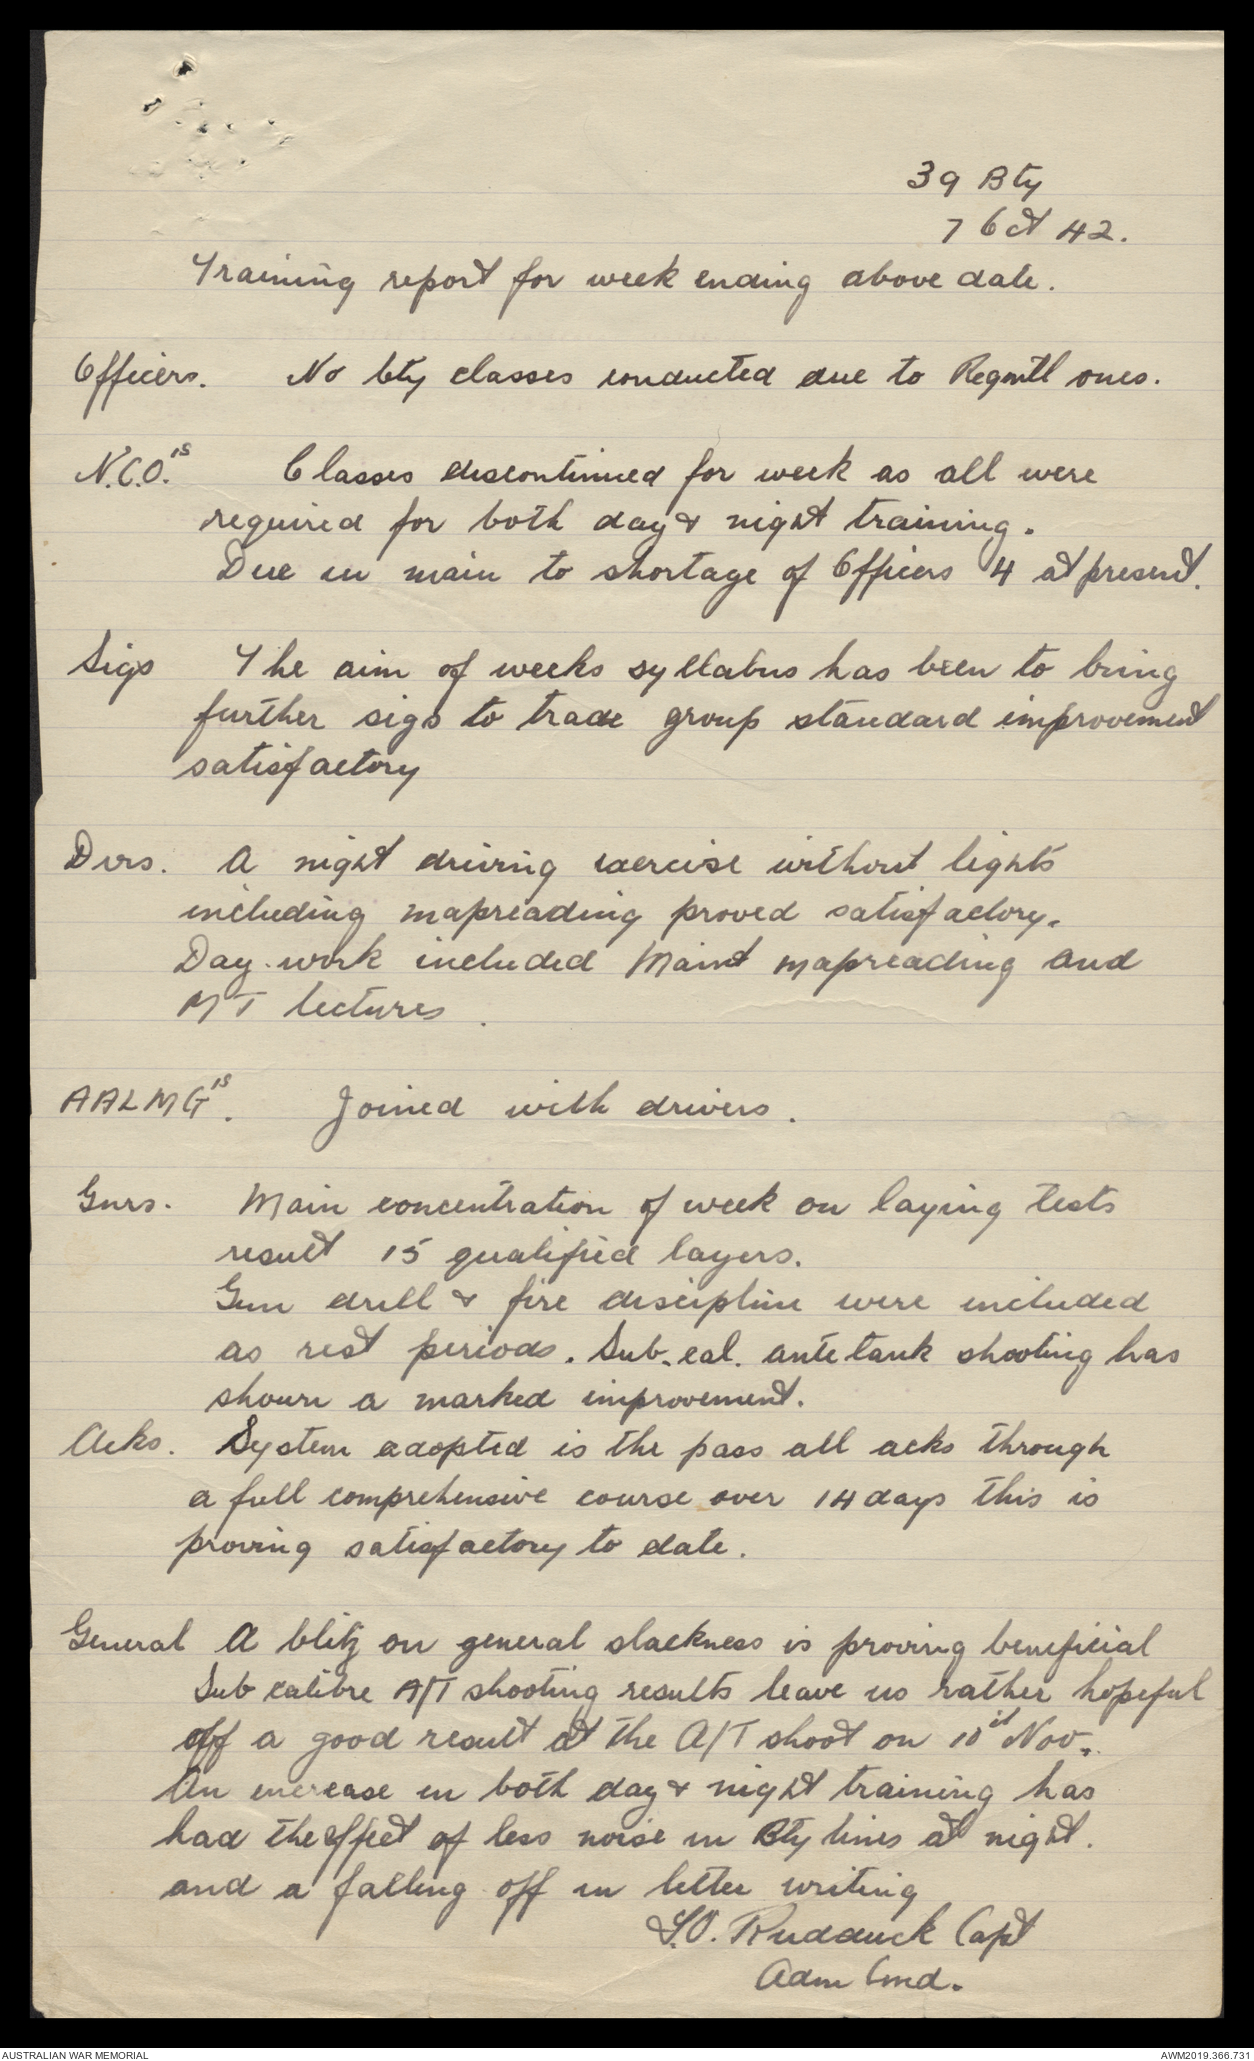 39 Bty
7 Oct 42.
Training report for week ending above date.
Officers. No bty classes conducted due to Regmtl ones.
N.C.O.'s Classes discontinued for week as all were
required for both day & night training.
Due in main to shortage of Officers 4 at present.
Sigs The aim of weeks syllabus has been to bring
further sigs to trade group standard improvement
satisfactory
Dvrs. A night driving exercise without lights
including mapreading proved satisfactory.
Day work included Maint mapreading and
MT lectures.
AALMG's. Joined with drivers.
Gnrs. Main concentration of week on laying tests
result 15 qualified layers.
Gun drill & fire discipline were included
as rest periods. Sub. cal. antitank shooting has
shown a marked improvement.
Acks. System adopted is the pass all acks through
a full comprehensive course over 14 days this is
proving satisfactory to date.
General A blitz on general slackness is proving beneficial
Sub calibre A/T shooting results leave us rather hopeful
off a good result at the A/T shoot on Nov.
An increase in both day & night training has
had the effect of less noise in Bty lines at night.
and a falling off in letter writing
Rudduck Capt
Adm Cmd.
AUSTRALIAN WAR MEMORIAL
AWM2019.366.731